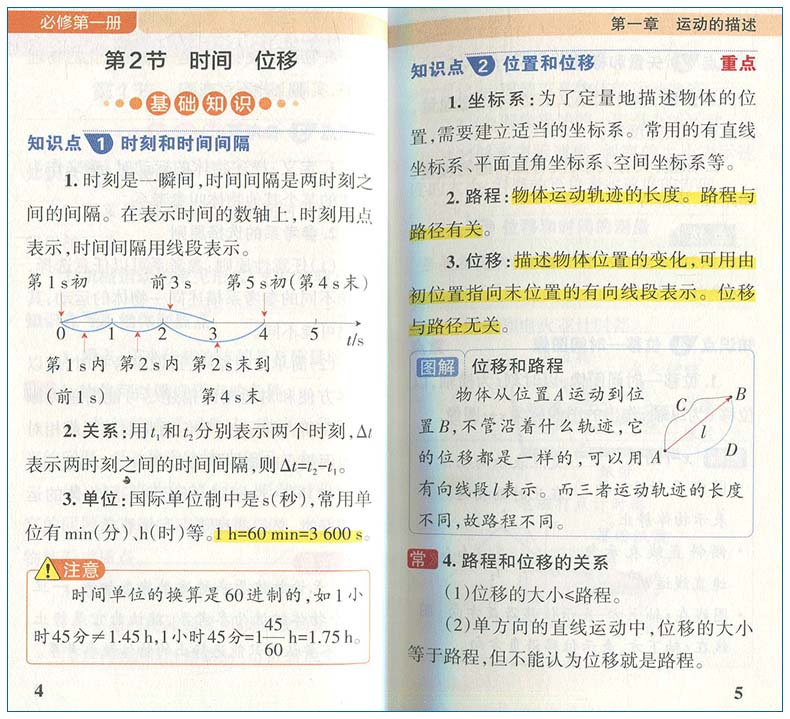 必修第一册
第2节 时间 位移
基础知识
知识点 1 时刻和时间间隔
1. 时刻是一瞬间,时间间隔是两时刻之
间的间隔。在表示时间的数轴上,时刻用点
表示,时间间隔用线段表示。
第1 s初 前3 s 第5 s初(第4 s末)
0 1 2 3 4 5 t/s
第1 s内 第2 s内 第2 s末到
(前1 s) 第4 s末
2. 关系:用t₁和t₂分别表示两个时刻,Δt
表示两时刻之间的时间间隔,则Δt=t₂-t₁。
3. 单位:国际单位制中是s(秒),常用单
位有min(分)、h(时)等。1 h=60 min=3 600 s。
注意
时间单位的换算是60进制的,如1小
时45分≠1.45 h,1小时45分=1 45/60 h=1.75 h。
4
第一章 运动的描述
知识点 2 位置和位移 重点
1. 坐标系:为了定量地描述物体的位
置,需要建立适当的坐标系。常用的有直线
坐标系、平面直角坐标系、空间坐标系等。
2. 路程:物体运动轨迹的长度。路程与
路径有关。
3. 位移:描述物体位置的变化,可用由
初位置指向末位置的有向线段表示。位移
与路径无关。
图解 位移和路程
物体从位置A运动到位
置B,不管沿着什么轨迹,它
的位移都是一样的,可以用
有向线段l表示。而三者运动轨迹的长度
不同,故路程不同。
B
C
l
A
D
常 4. 路程和位移的关系
(1)位移的大小≤路程。
(2)单方向的直线运动中,位移的大小
等于路程,但不能认为位移就是路程。
5